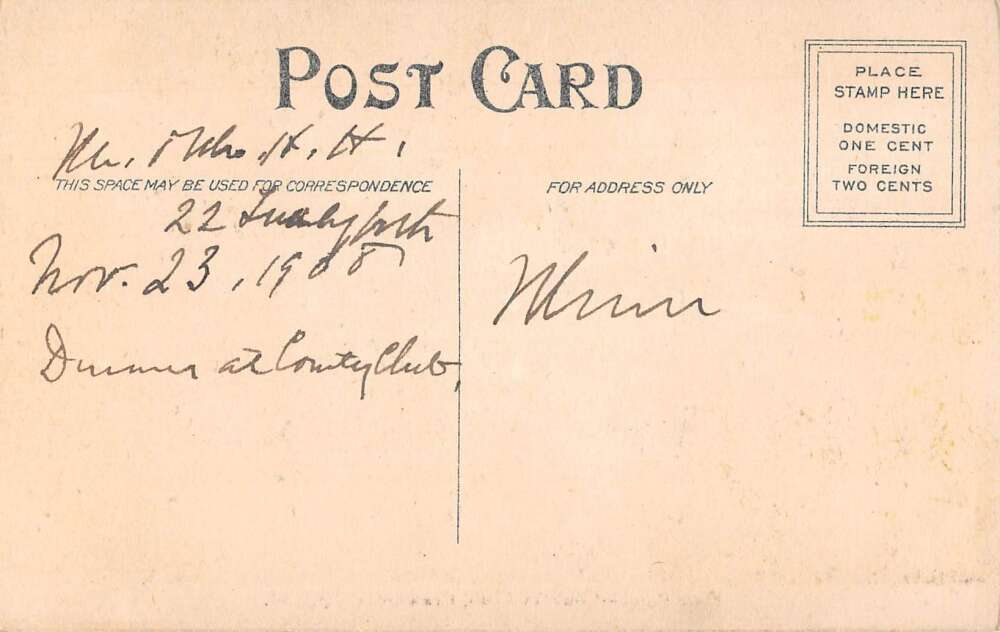 POST CARD
PLACE
STAMP HERE
DOMESTIC
ONE CENT
FOREIGN
TWO CENTS
H. H.
THIS SPACE MAY BE USED FOR CORRESPONDENCE
FOR ADDRESS ONLY
22
Nov. 23, 1908
Dinner at County Club,